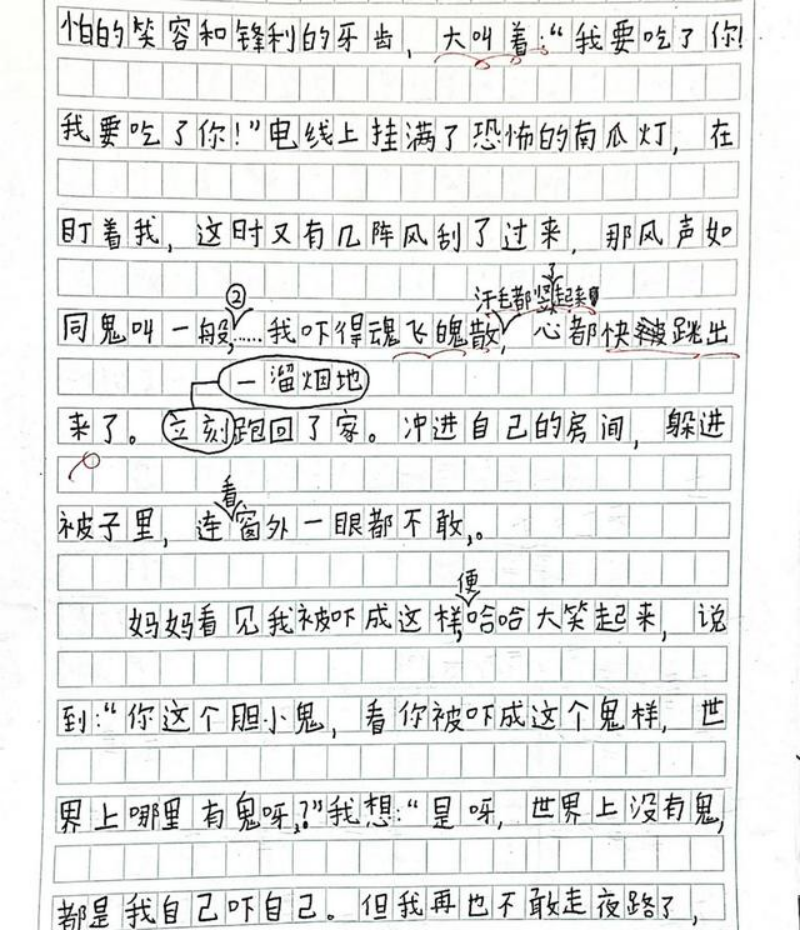 怕的笑容和锋利的牙齿，大叫着：“我要吃了你！
我要吃了你！”电线上挂满了恐怖的南瓜灯，在
盯着我，这时又有几阵风刮了过来，那风声如
②
了
汗毛都竖起来
同鬼叫一般，……我吓得魂飞魄散，心都快跳出
一溜烟地
来了。立刻跑回了家。冲进自己的房间，躲进
看
被子里，连窗外一眼都不敢，。
便
妈妈看见我被吓成这样，哈哈大笑起来，说
到：“你这个胆小鬼，看你被吓成这个鬼样，世
界上哪里有鬼呀，？”我想：“是呀，世界上没有鬼，
都是我自己吓自己。但我再也不敢走夜路了，